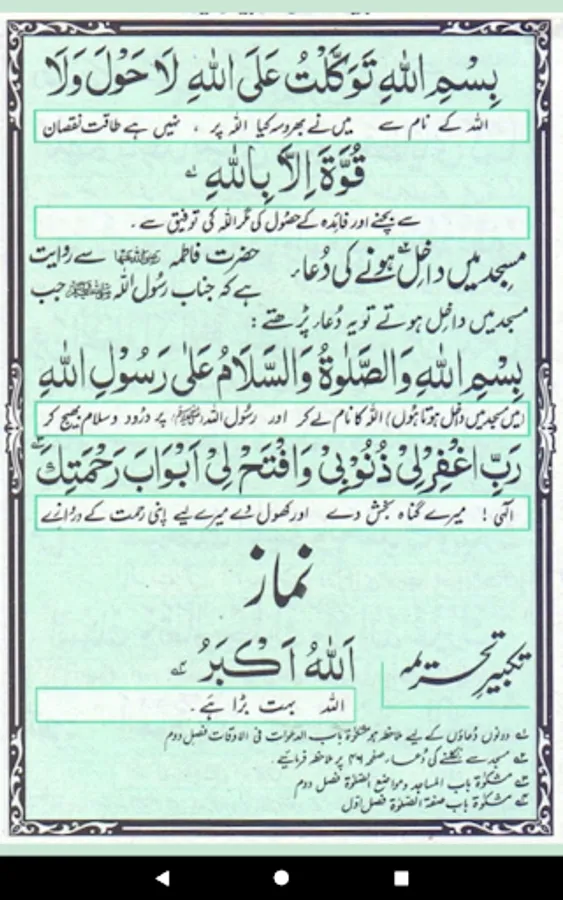 بِسْمِ اللهِ تَوَكَّلْتُ عَلَى اللهِ لَا حَوْلَ وَلَا
اللہ کے نام سے میں نے بھروسہ کیا اللہ پر ، نہیں ہے طاقت نقصان
قُوَّةَ اِلَّا بِاللهِ
سے بچنے اور فائدہ کے حصول کی مگر اللہ کی توفیق سے ۔
مسجد میں داخل ہونے کی دُعاء حضرت فاطمہ رضی اللہ عنہا سے روایت
ہے کہ جناب رسول اللہ ﷺ جب
مسجد میں داخل ہوتے تو یہ دُعاء پڑھتے :
بِسْمِ اللهِ وَالصَّلٰوةُ وَالسَّلَامُ عَلٰى رَسُوْلِ اللهِ
(میں مسجد میں داخل ہوتا ہوں) اللہ کا نام لے کر اور رسُول اللہ (ﷺ) پر درُود و سلام بھیج کر
رَبِّ اغْفِرْ لِیْ ذُنُوْبِیْ وَافْتَحْ لِیْ اَبْوَابَ رَحْمَتِكَ
الٰہی ! میرے گناہ بخش دے اور کھول دے میرے لیے اپنی رحمت کے دروازے
نماز
تکبیرِ تحریمہ اَللهُ اَكْبَرُ
اللہ بہت بڑا ہَے ۔
دونوں دُعاؤں کے لیے ملاحظہ ہو مشکوٰۃ باب الدعوات فی الاوقات فصل دوم
مسجد سے نکلنے کی دُعاء صفحہ ۴۶ پر ملاحظہ فرمائیے ۔
مشکوٰۃ باب المساجد ومواضع الصّلوٰۃ فصل دوم
مشکوٰۃ باب صفۃ الصّلوٰۃ فصل اوّل